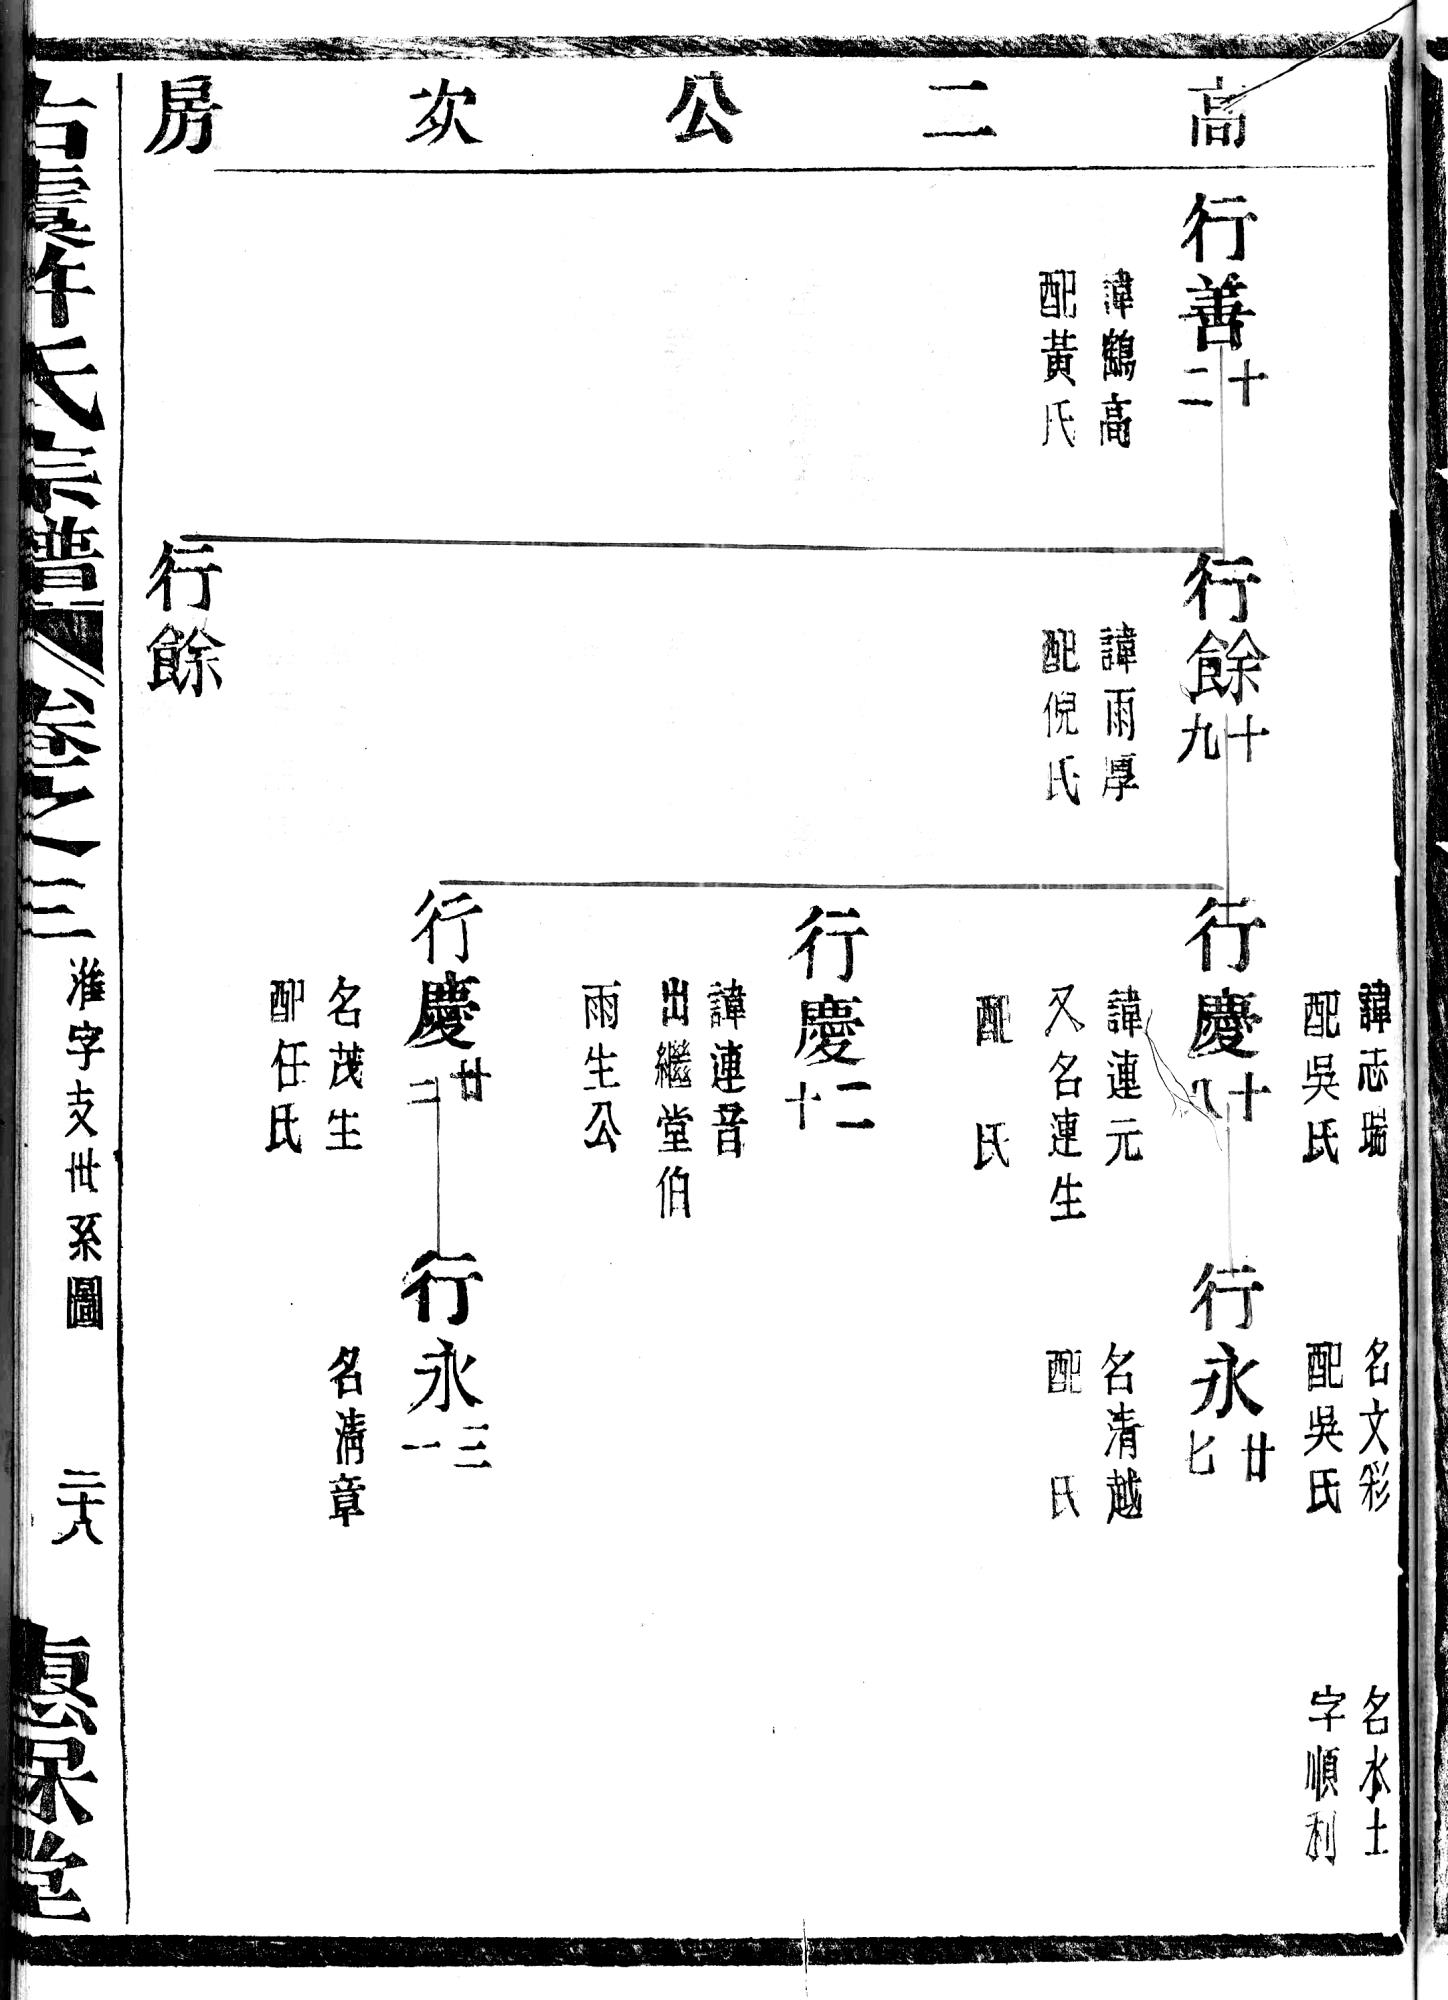 高二公次房
諱志瑞
配吳氏
名文彩
配吳氏
名水土
字順利
行善十二
諱鶴高
配黃氏
行餘十九
諱雨厚
配倪氏
行慶十八
諱連元
又名連生
配 氏
行永廿七
名清越
配 氏
行慶二十
諱連音
出繼堂伯
雨生公
行慶廿二
名茂生
配任氏
行永三一
名清章
行餘
古虞許氏宗譜 卷之三
淮字支世系圖
二十八
惠保堂